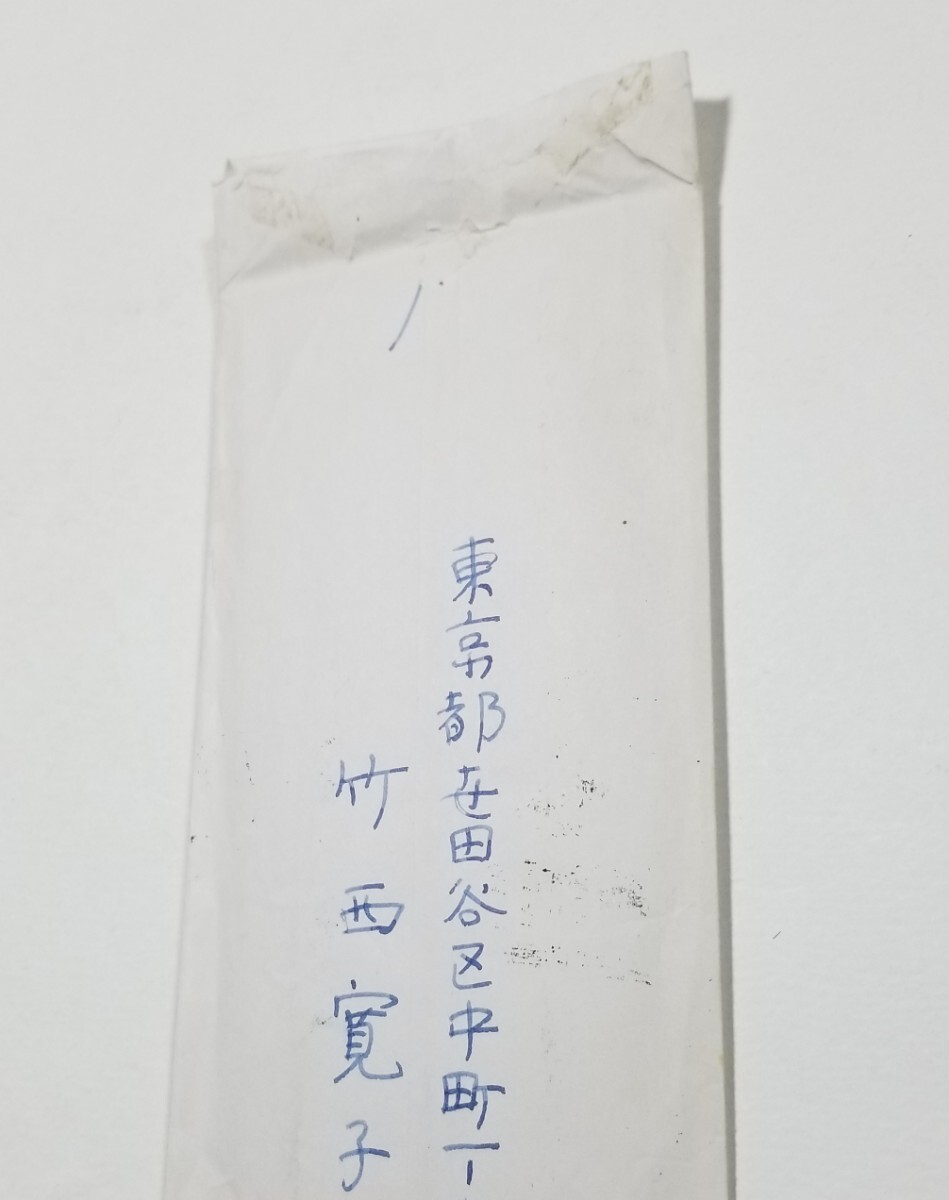 東京都世田谷区中町一
竹西寛子